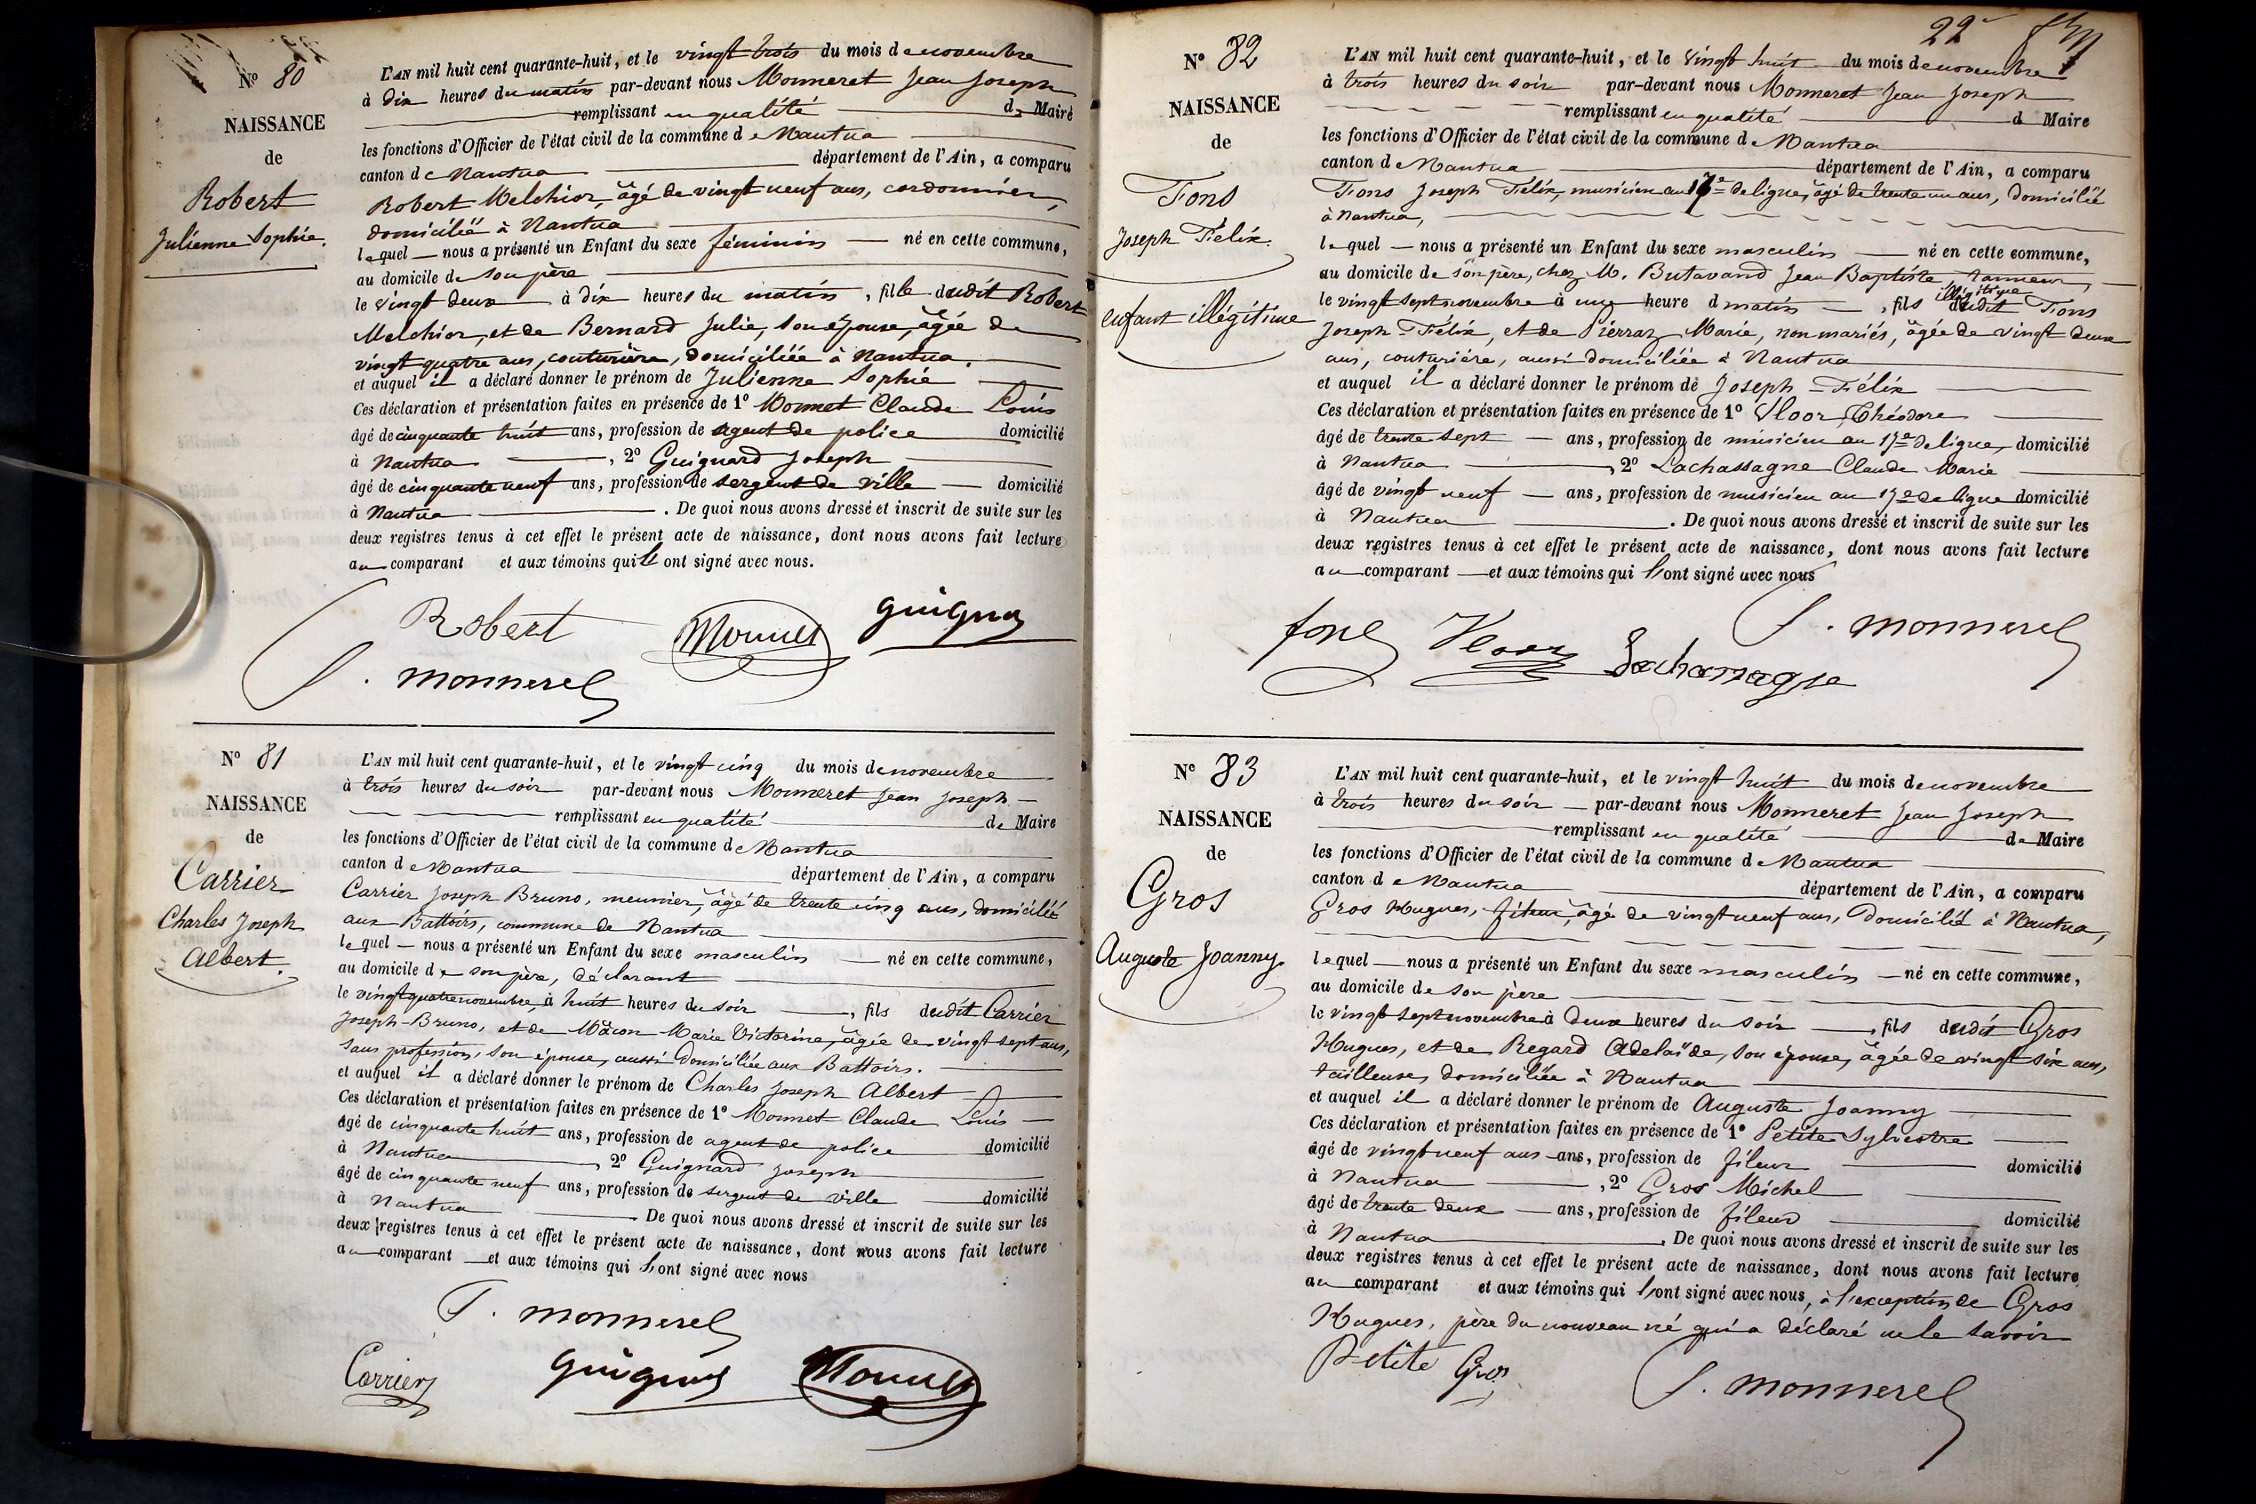 Nº 80
NAISSANCE
de
Robert
Julienne Sophie.
L'AN mil huit cent quarante-huit, et le vingt trois du mois de novembre
à dix heures du matin par-devant nous Monneret Jean Joseph
remplissant en qualité de Maire
les fonctions d'Officier de l'état civil de la commune de Nantua
canton de Nantua département de l'Ain, a comparu
Robert Melchior, âgé de vingt neuf ans, cordonnier,
domicilié à Nantua
lequel nous a présenté un Enfant du sexe féminin né en cette commune,
au domicile de son père
le vingt deux à dix heures du matin, fille dudit Robert
Melchior, et de Bernard Julie, son épouse, âgée de
vingt quatre ans, couturière, domiciliée à Nantua.
et auquel il a déclaré donner le prénom de Julienne Sophie
Ces déclaration et présentation faites en présence de 1º Monnet Claude Louis
âgé de cinquante huit ans, profession de agent de police domicilié
à Nantua, 2º Guignard Joseph
âgé de cinquante neuf ans, profession de sergent de ville domicilié
à Nantua. De quoi nous avons dressé et inscrit de suite sur les
deux registres tenus à cet effet le présent acte de naissance, dont nous avons fait lecture
au comparant et aux témoins qui l'ont signé avec nous.
Robert Monnet Guignard
J. Monneret
Nº 81
NAISSANCE
de
Carrier
Charles Joseph
Albert.
L'AN mil huit cent quarante-huit, et le vingt cinq du mois de novembre
à trois heures du soir par-devant nous Monneret Jean Joseph
remplissant en qualité de Maire
les fonctions d'Officier de l'état civil de la commune de Nantua
canton de Nantua département de l'Ain, a comparu
Carrier Joseph Bruno, meunier, âgé de trente cinq ans, domicilié
aux Battoirs, commune de Nantua
lequel nous a présenté un Enfant du sexe masculin né en cette commune,
au domicile de son père, déclarant
le vingt quatre novembre, à huit heures du soir, fils dudit Carrier
Joseph-Bruno, et de Mâcon Marie Victorine, âgée de vingt sept ans,
sans profession, son épouse, aussi domiciliée aux Battoirs.
et auquel il a déclaré donner le prénom de Charles Joseph Albert
Ces déclaration et présentation faites en présence de 1º Monnet Claude Louis
âgé de cinquante huit ans, profession de agent de police domicilié
à Nantua, 2º Guignard Joseph
âgé de cinquante neuf ans, profession de sergent de ville domicilié
à Nantua. De quoi nous avons dressé et inscrit de suite sur les
deux registres tenus à cet effet le présent acte de naissance, dont nous avons fait lecture
au comparant et aux témoins qui l'ont signé avec nous
J. Monneret
Carrier Guignard Monnet
22
Nº 82
NAISSANCE
de
Fons
Joseph Félix.
enfant illégitime
L'AN mil huit cent quarante-huit, et le vingt huit du mois de novembre
à trois heures du soir par-devant nous Monneret Jean Joseph
remplissant en qualité de Maire
les fonctions d'Officier de l'état civil de la commune de Nantua
canton de Nantua département de l'Ain, a comparu
Fons Joseph Félix, musicien au 17e de ligne, âgé de trente un ans, domicilié
à Nantua,
lequel nous a présenté un Enfant du sexe masculin né en cette commune,
au domicile de son père, chez M. Butavand Jean Baptiste, tanneur,
le vingt sept novembre à une heure du matin, fils illégitime dudit Fons
Joseph Félix, et de Pierraz Marie, non mariés, âgée de vingt deux
ans, couturière, aussi domiciliée à Nantua
et auquel il a déclaré donner le prénom de Joseph-Félix
Ces déclaration et présentation faites en présence de 1º Vloor Théodore
âgé de trente sept ans, profession de musicien au 17e de ligne, domicilié
à Nantua, 2º Lachassagne Claude Marie
âgé de vingt neuf ans, profession de musicien au 17e de ligne domicilié
à Nantua. De quoi nous avons dressé et inscrit de suite sur les
deux registres tenus à cet effet le présent acte de naissance, dont nous avons fait lecture
au comparant et aux témoins qui l'ont signé avec nous
J. Monneret
fons Vloor Lachassagne
Nº 83
NAISSANCE
de
Gros
Auguste Joanny.
L'AN mil huit cent quarante-huit, et le vingt huit du mois de novembre
à trois heures du soir par-devant nous Monneret Jean Joseph
remplissant en qualité de Maire
les fonctions d'Officier de l'état civil de la commune de Nantua
canton de Nantua département de l'Ain, a comparu
Gros Hugues, fileur, âgé de vingt neuf ans, domicilié à Nantua,
lequel nous a présenté un Enfant du sexe masculin né en cette commune,
au domicile de son père
le vingt sept novembre à deux heures du soir, fils dudit Gros
Hugues, et de Regard Adelaïde, son épouse, âgée de vingt six ans,
tailleuse, domiciliée à Nantua
et auquel il a déclaré donner le prénom de Auguste Joanny
Ces déclaration et présentation faites en présence de 1º Petite Sylvestre
âgé de vingt neuf ans ans, profession de fileur domicilié
à Nantua, 2º Gros Michel
âgé de trente deux ans, profession de fileur domicilié
à Nantua. De quoi nous avons dressé et inscrit de suite sur les
deux registres tenus à cet effet le présent acte de naissance, dont nous avons fait lecture
au comparant et aux témoins qui l'ont signé avec nous, à l'exception de Gros
Hugues, père du nouveau né qui a déclaré ne le savoir
Petite Gros J. Monneret